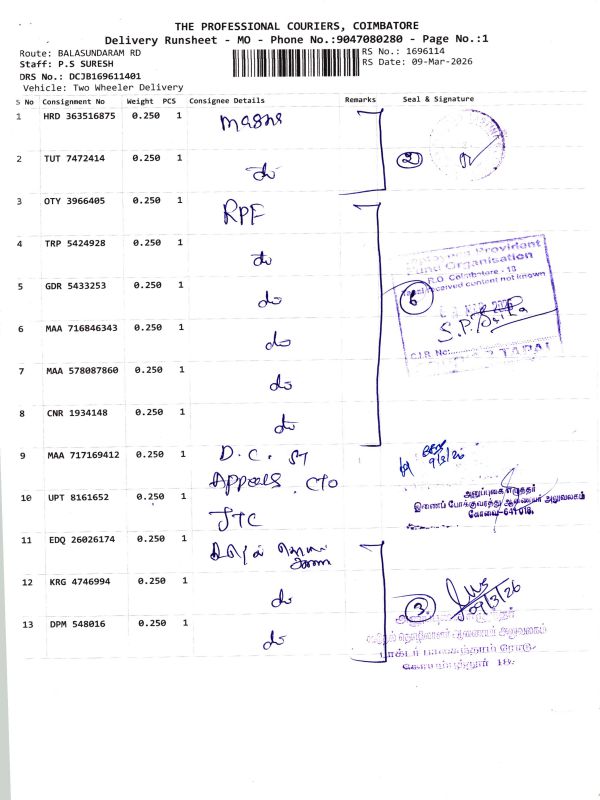 THE PROFESSIONAL COURIERS, COIMBATORE
Delivery Runsheet - MO - Phone No.:9047080280 - Page No.:1
Route: BALASUNDARAM RD
RS No.: 1696114
Staff: P.S SURESH
RS Date: 09-Mar-2026
DRS No.: DCJB169611401
Vehicle: Two Wheeler Delivery
S No Consignment No Weight PCS Consignee Details Remarks Seal & Signature
1 HRD 363516875 0.250 1
2 TUT 7472414 0.250 1 do
2
3 OTY 3966405 0.250 1 RPF
4 TRP 5424928 0.250 1 do
Provident
Fund Organisation
R.O Coimbatore - 18
received content not known
5 GDR 5433253 0.250 1 do
6
6 MAA 716846343 0.250 1 do
C.I.R No:
TAPAL
7 MAA 578087860 0.250 1 do
8 CNR 1934148 0.250 1 do
9 MAA 717169412 0.250 1 D.C. ST
9/3/26
Appeals. CTO
10 UPT 8161652 0.250 1 JTC
அனுப்புகை எழுத்தர்
இணைப் போக்குவரத்து ஆணையர் அலுவலகம்
கோவை-641 018.
11 EDQ 26026174 0.250 1
12 KRG 4746994 0.250 1 do
3.
09/3/26
13 DPM 548016 0.250 1 do